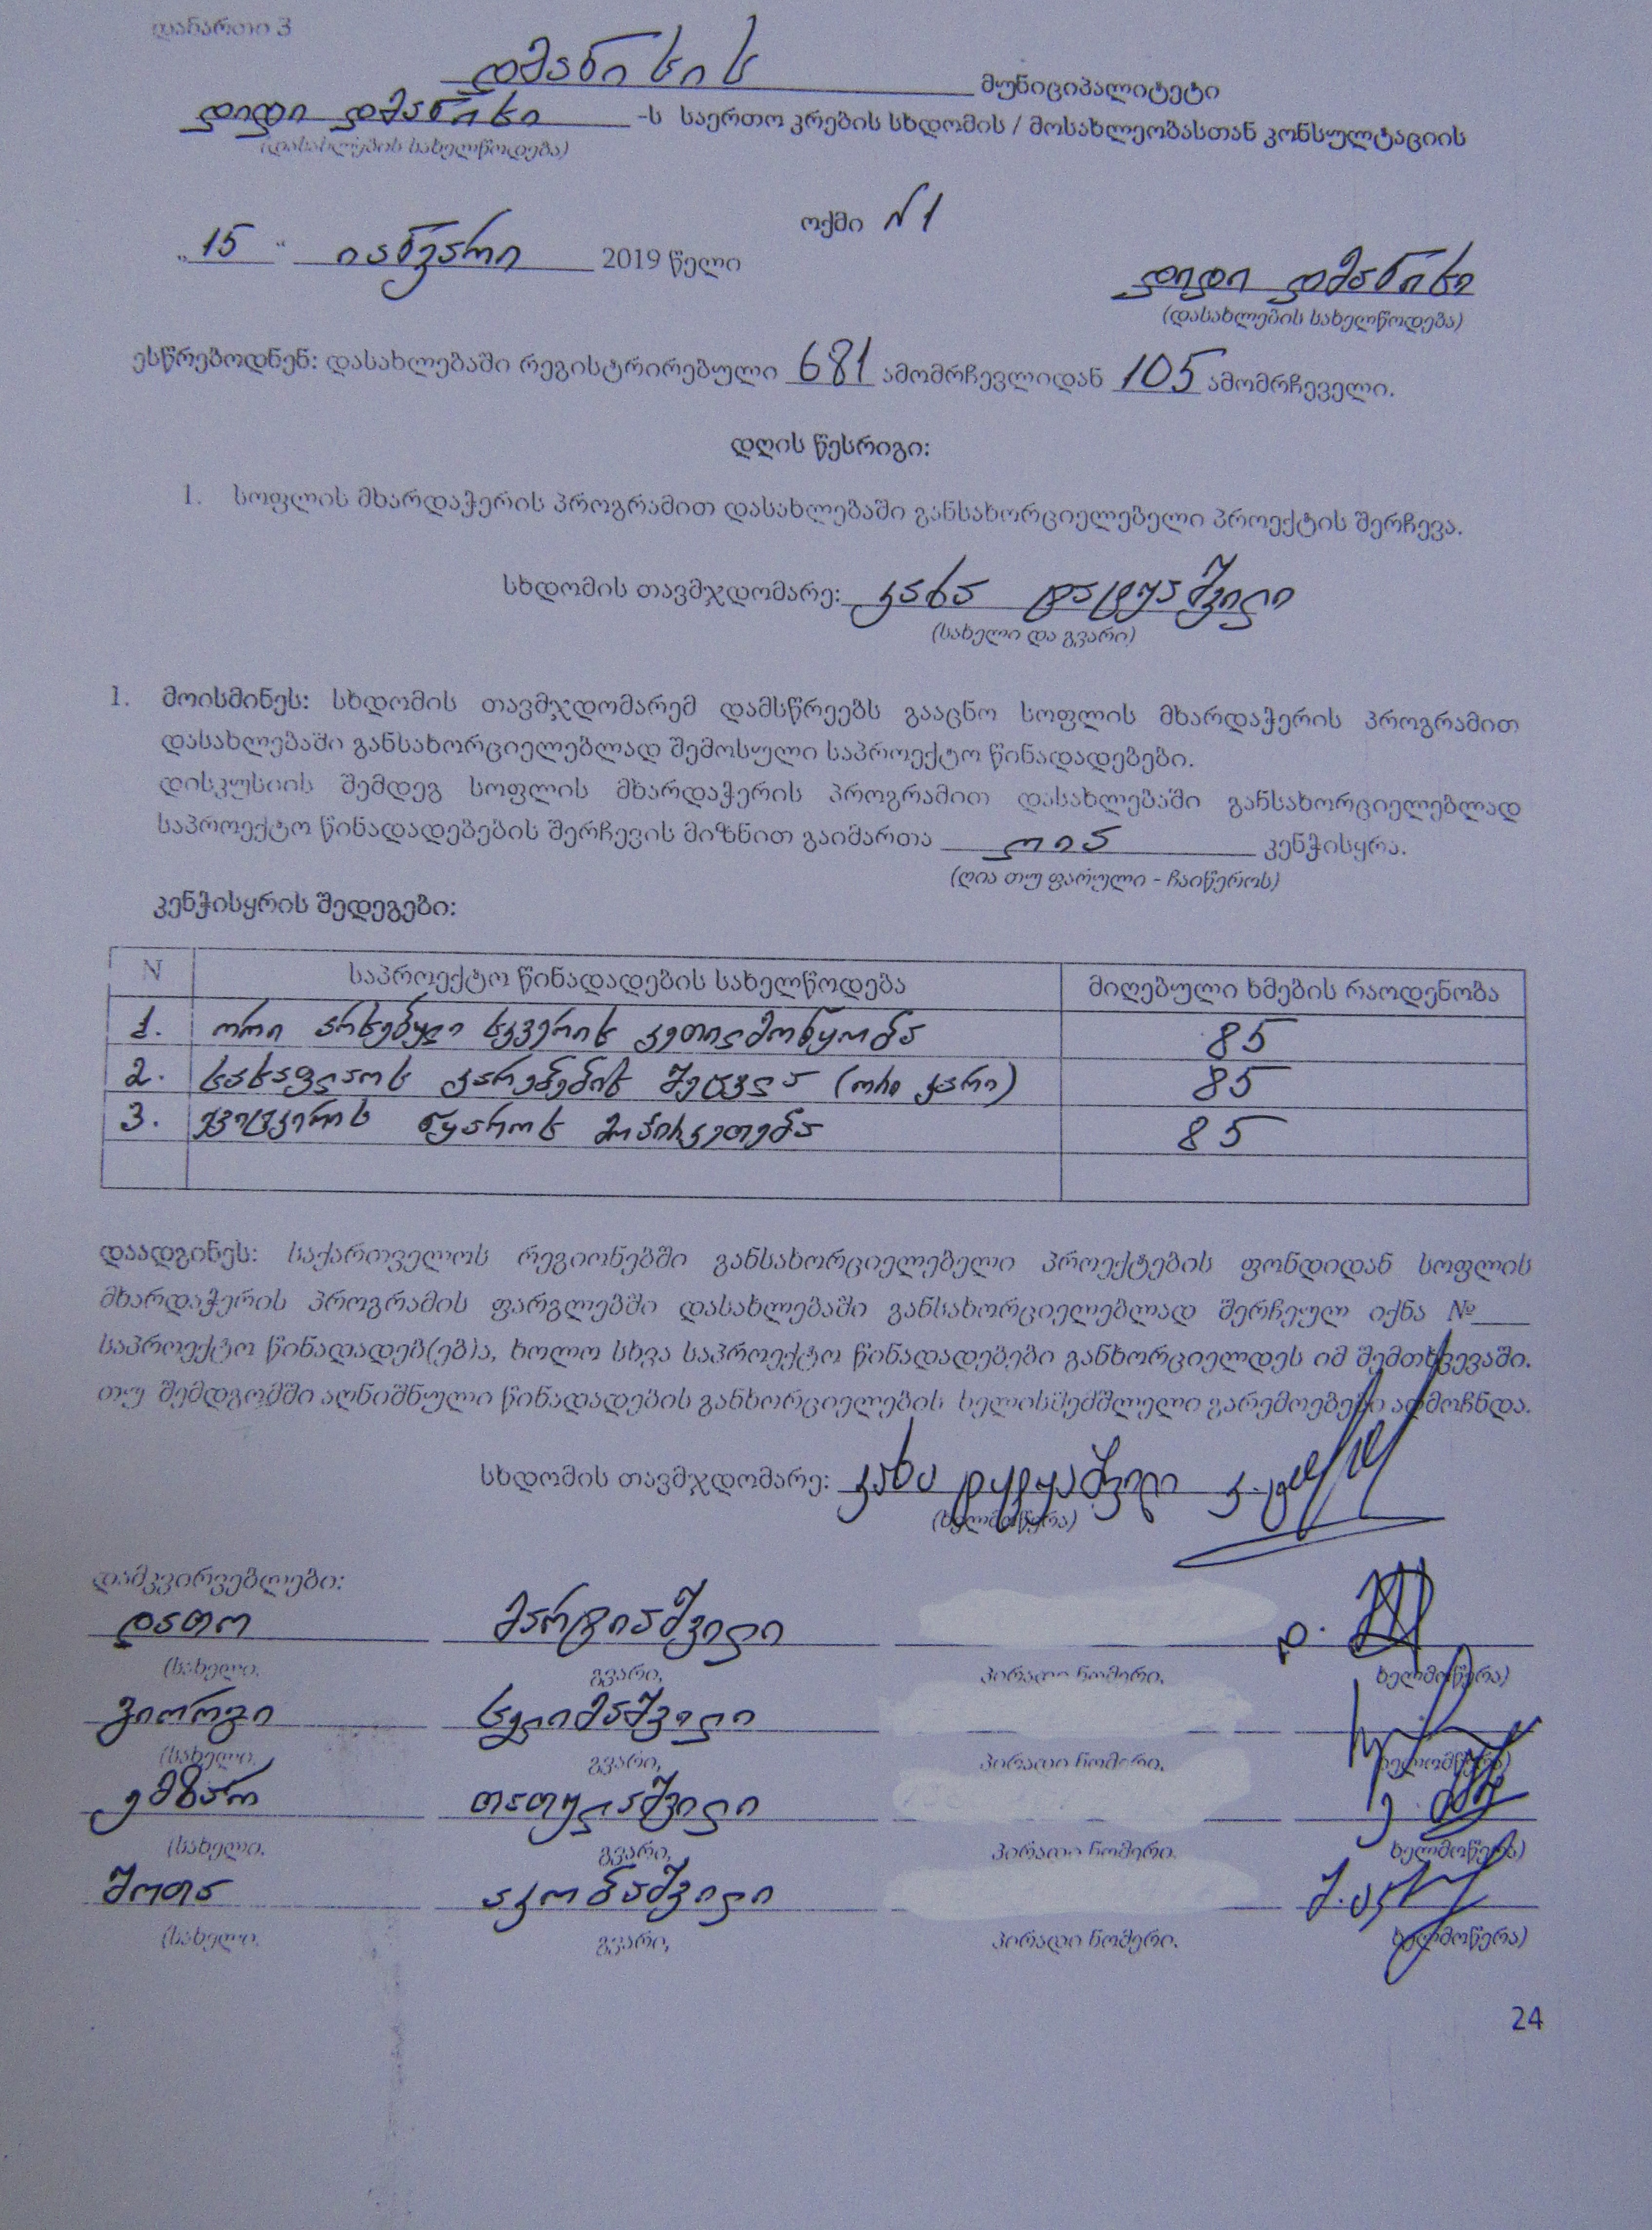 დანართი 3
დმანისის მუნიციპალიტეტი
დიდი დმანისი -ს საერთო კრების სხდომის / მოსახლეობასთან კონსულტაციის
(დასახლების სახელწოდება)
ოქმი N1
„15“ იანვარი 2019 წელი
დიდი დმანისი
(დასახლების სახელწოდება)
ესწრებოდნენ: დასახლებაში რეგისტრირებული 681 ამომრჩევლიდან 105 ამომრჩეველი.
დღის წესრიგი:
1. სოფლის მხარდაჭერის პროგრამით დასახლებაში განსახორციელებელი პროექტის შერჩევა.
სხდომის თავმჯდომარე: კახა ტატუაშვილი
(სახელი და გვარი)
1. მოისმინეს: სხდომის თავმჯდომარემ დამსწრეებს გააცნო სოფლის მხარდაჭერის პროგრამით
დასახლებაში განსახორციელებლად შემოსული საპროექტო წინადადებები.
დისკუსიის შემდეგ სოფლის მხარდაჭერის პროგრამით დასახლებაში განსახორციელებლად
საპროექტო წინადადებების შერჩევის მიზნით გაიმართა ღია კენჭისყრა.
(ღია თუ ფარული - ჩაიწეროს)
კენჭისყრის შედეგები:
N საპროექტო წინადადების სახელწოდება მიღებული ხმების რაოდენობა
1. ორი არსებული სკვერის კეთილმოწყობა 85
2. სასაფლაოს კარებების შეცვლა (ორი კარი) 85
3. წყაროს მოპირკეთება 85
დაადგინეს: საქართველოს რეგიონებში განსახორციელებელი პროექტების ფონდიდან სოფლის
მხარდაჭერის პროგრამის ფარგლებში დასახლებაში განსახორციელებლად შერჩეულ იქნა №___
საპროექტო წინადადებ(ებ)ა, ხოლო სხვა საპროექტო წინადადებები განხორციელდეს იმ შემთხვევაში.
თუ შემდგომში აღნიშნული წინადადების განხორციელების ხელისშემშლელი გარემოებები აღმოჩნდა.
სხდომის თავმჯდომარე: კახა ტატუაშვილი
(ხელმოწერა)
დამკვირვებლები:
დათო მარტიაშვილი
(სახელი, გვარი, პირადი ნომერი, ხელმოწერა)
გიორგი სულიმაშვილი
(სახელი, გვარი, პირადი ნომერი, ხელმოწერა)
ემზარ თათულაშვილი
(სახელი, გვარი, პირადი ნომერი, ხელმოწერა)
შოთა აკობაშვილი
(სახელი, გვარი, პირადი ნომერი, ხელმოწერა)
24